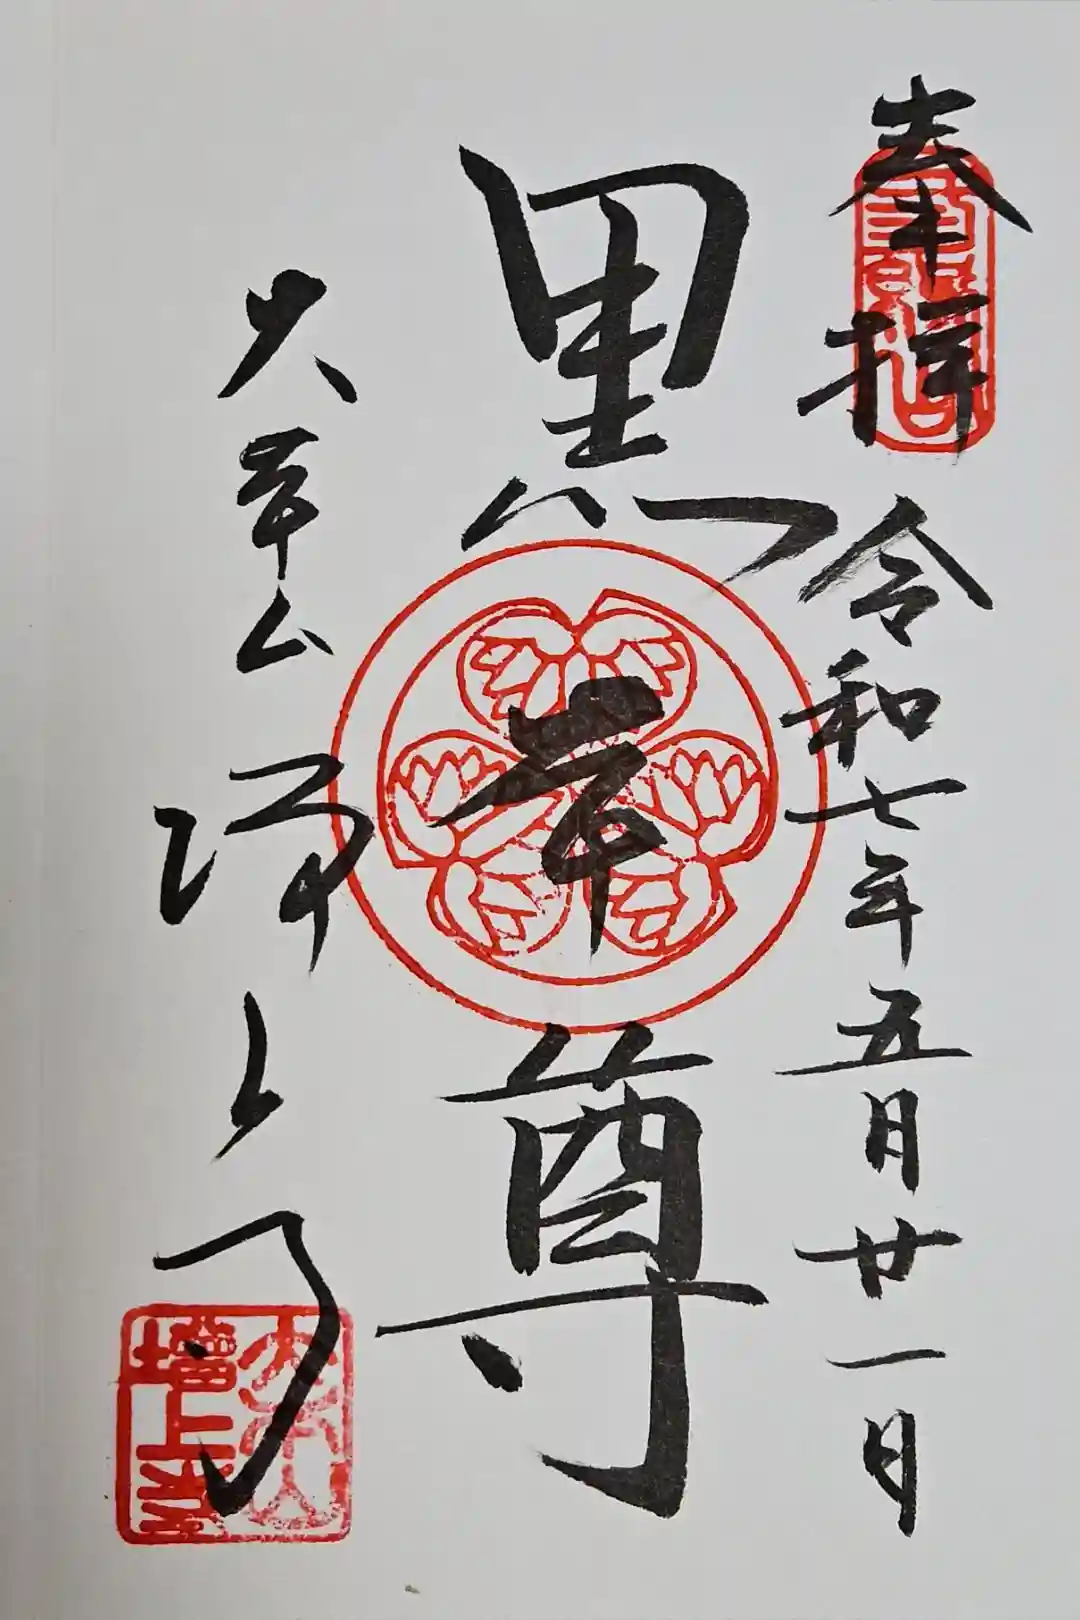 奉拝
令和七年五月廿一日
黒本尊
大本山
増上寺
大本山
増上寺